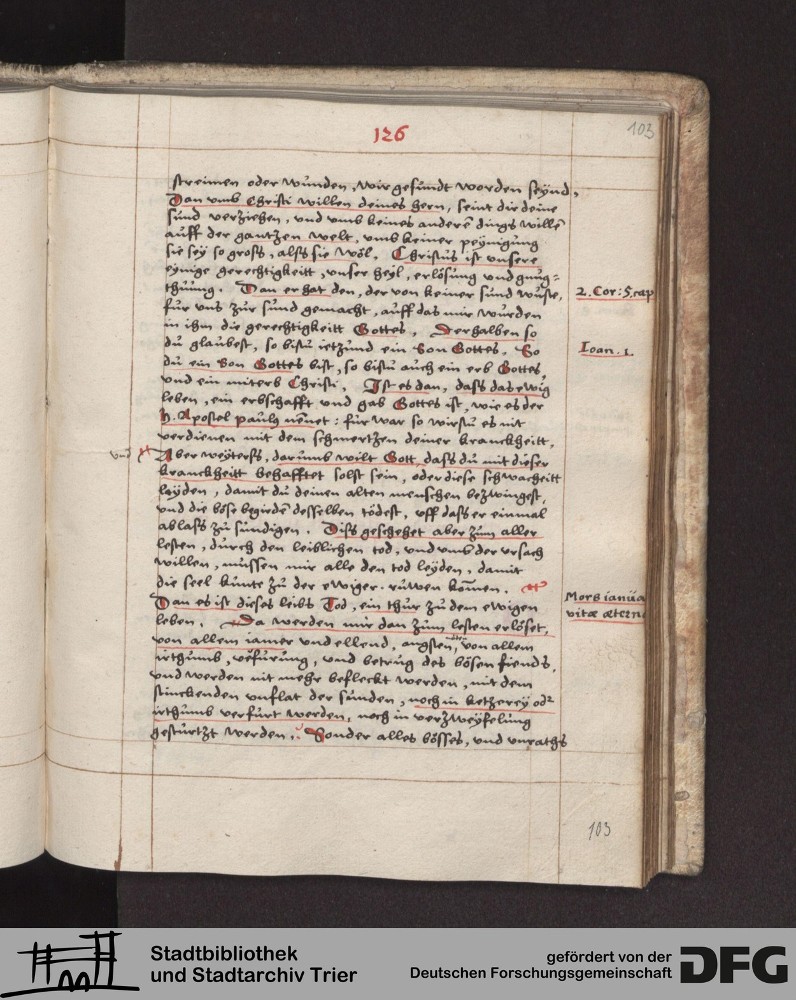 126
103
streimen oder wunden, wir gesundt worden seÿnd,
Dan vmb Christi willen deines hern, seint dir deine
sünd verziehen, vnd vmb keines anderē dings willē
auff der gantzen welt, vmb keiner peÿnigung
sie seÿ so gross, alss sie wöl. Christus ist vnsere
eÿnige gerechtigkeitt, vnser heÿl, erlösung vnd gnug=
thuung. Dan er hat den, der von keiner sünd wuste,
für vns zur sünd gemacht, auff das mir wurden
in ihm die gerechtigkeitt Gottes. Derhalben so
du glaubest, so bistu ietzund ein Son Gottes. So
du ein Son Gottes bist, so bistu auch ein erb Gottes,
vnd ein miterb Christi. Ist es dan, dass das ewig
leben, ein erbschafft vnd gab Gottes ist, wie es der
h. Apostel paulus nēnet: für war so wirstu es nit
verdienen mit dem schmertzen deiner kranckheitt.
vnd Aber weÿterss, darumb wilt Gott, dass du mit dieser
kranckheitt behafftet solst sein, oder diese schwacheitt
leÿden, damit du deinen alten menschen bezwingest,
vnd die böse begirden desselben tödest, vff dass er einmal
ablass zu sündigen. Diss geschehet aber zum aller
lesten, durch den leiblichen tod, vnd vmb der vrsach
willen, müssen mir alle den tod leÿden, damit
die seel künte zu der ewiger ruwen kōmen.
Dan es ist dieses leibs Tod, ein thür zu dem ewigen
leben. Da werden mir dan zum lesten erlöset,
von allem iamer vnd ellend, angsten, von allem
irthumb, vefürung, vnd betrug des bösen fiends,
vnd werden nit mehr befleckt werden, mit dem
stinckenden vnflat der sünden, noch in ketzereÿ od
irthumb verfürt werden, noch in verzweÿfelung
gestürtzt werden. Sonder alles bösses, vnd vnraths
2. Cor: 5. cap
Ioan. 1.
Mors ianua
vitæ æternæ
103
Stadtbibliothek
und Stadtarchiv Trier
gefördert von der
Deutschen Forschungsgemeinschaft
DFG